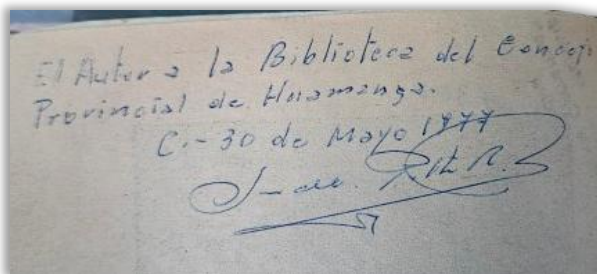 El Autor a la Biblioteca del Concejo
Provincial de Huamanga.
C.- 30 de Mayo 1977